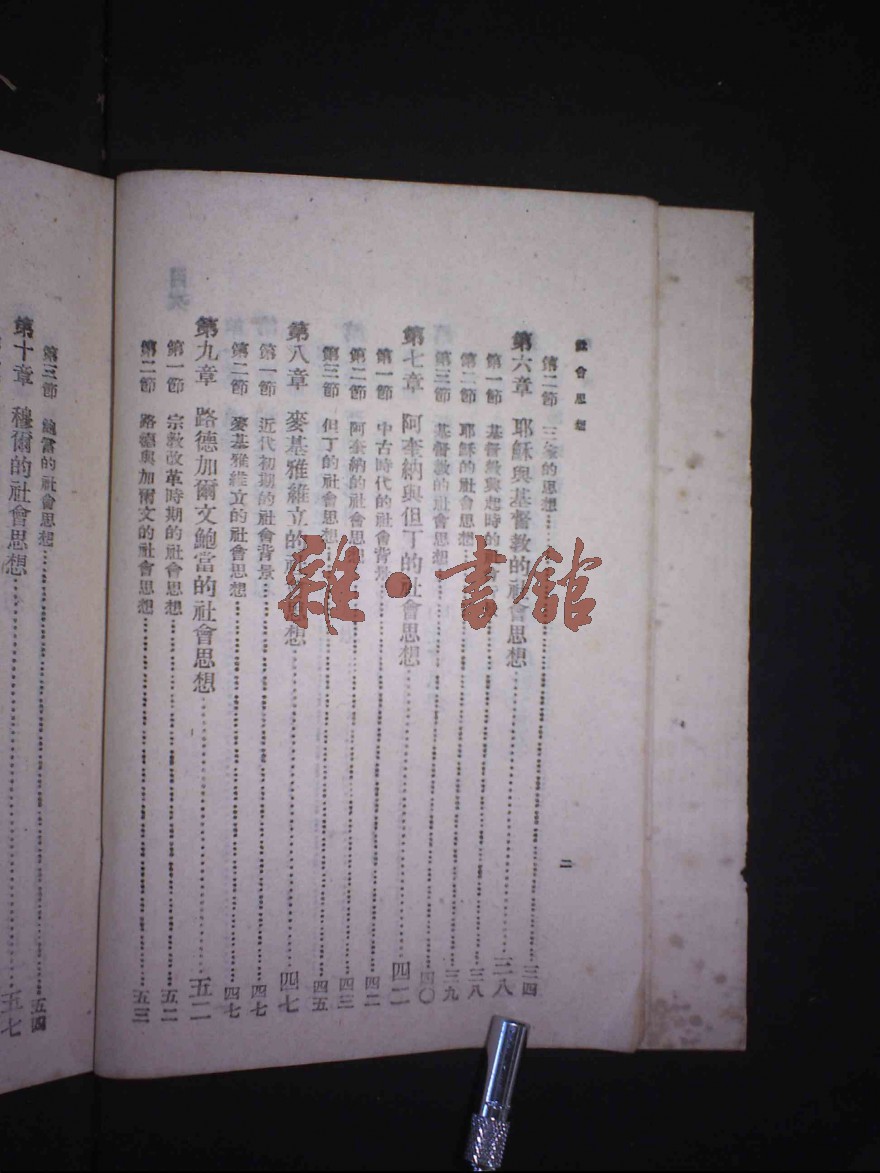 社會思想
二
第二節 三 的思想 三四
第六章 耶穌與基督教的社會思想 三八
第一節 基督教興起時的 會 三八
第二節 耶穌的社會思想 三九
第三節 基督教的社會思想 四〇
第七章 阿奎納與但丁的社會思想 四二
第一節 中古時代的社會背景 四二
第二節 阿奎納的社會思想 四三
第三節 但丁的社會思想 四五
第八章 麥基雅維立的社會思想 四七
第一節 近代初期的社會背景 四七
第二節 麥基雅維立的社會思想 四七
第九章 路德加爾文鮑當的社會思想 五二
第一節 宗教改革時期的社會思想 五二
第二節 路德與加爾文的社會思想 五三
第三節 鮑當的社會思想 五四
第十章 穆爾的社會思想 五七
雜·書館